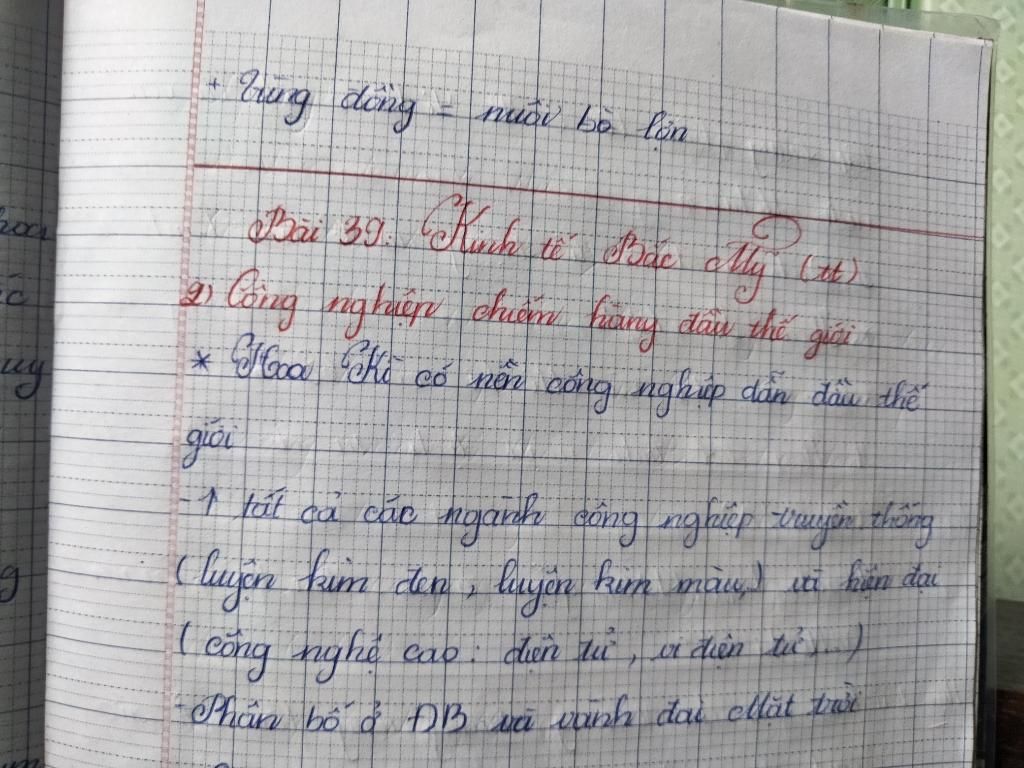 + Trung đông = nuôi bò lợn
Bài 39: Kinh tế Bắc Mỹ (tt)
2) Công nghiệp chiếm hàng đầu thế giới
* Hoa Kì có nền công nghiệp dẫn đầu thế
giới
- ↑ tất cả các ngành công nghiệp truyền thống
(luyện kim đen, luyện kim màu,) và hiện đại
(công nghệ cao: điện tử, vi điện tử,...)
- Phân bố ở ĐB và vành đai Mặt trời